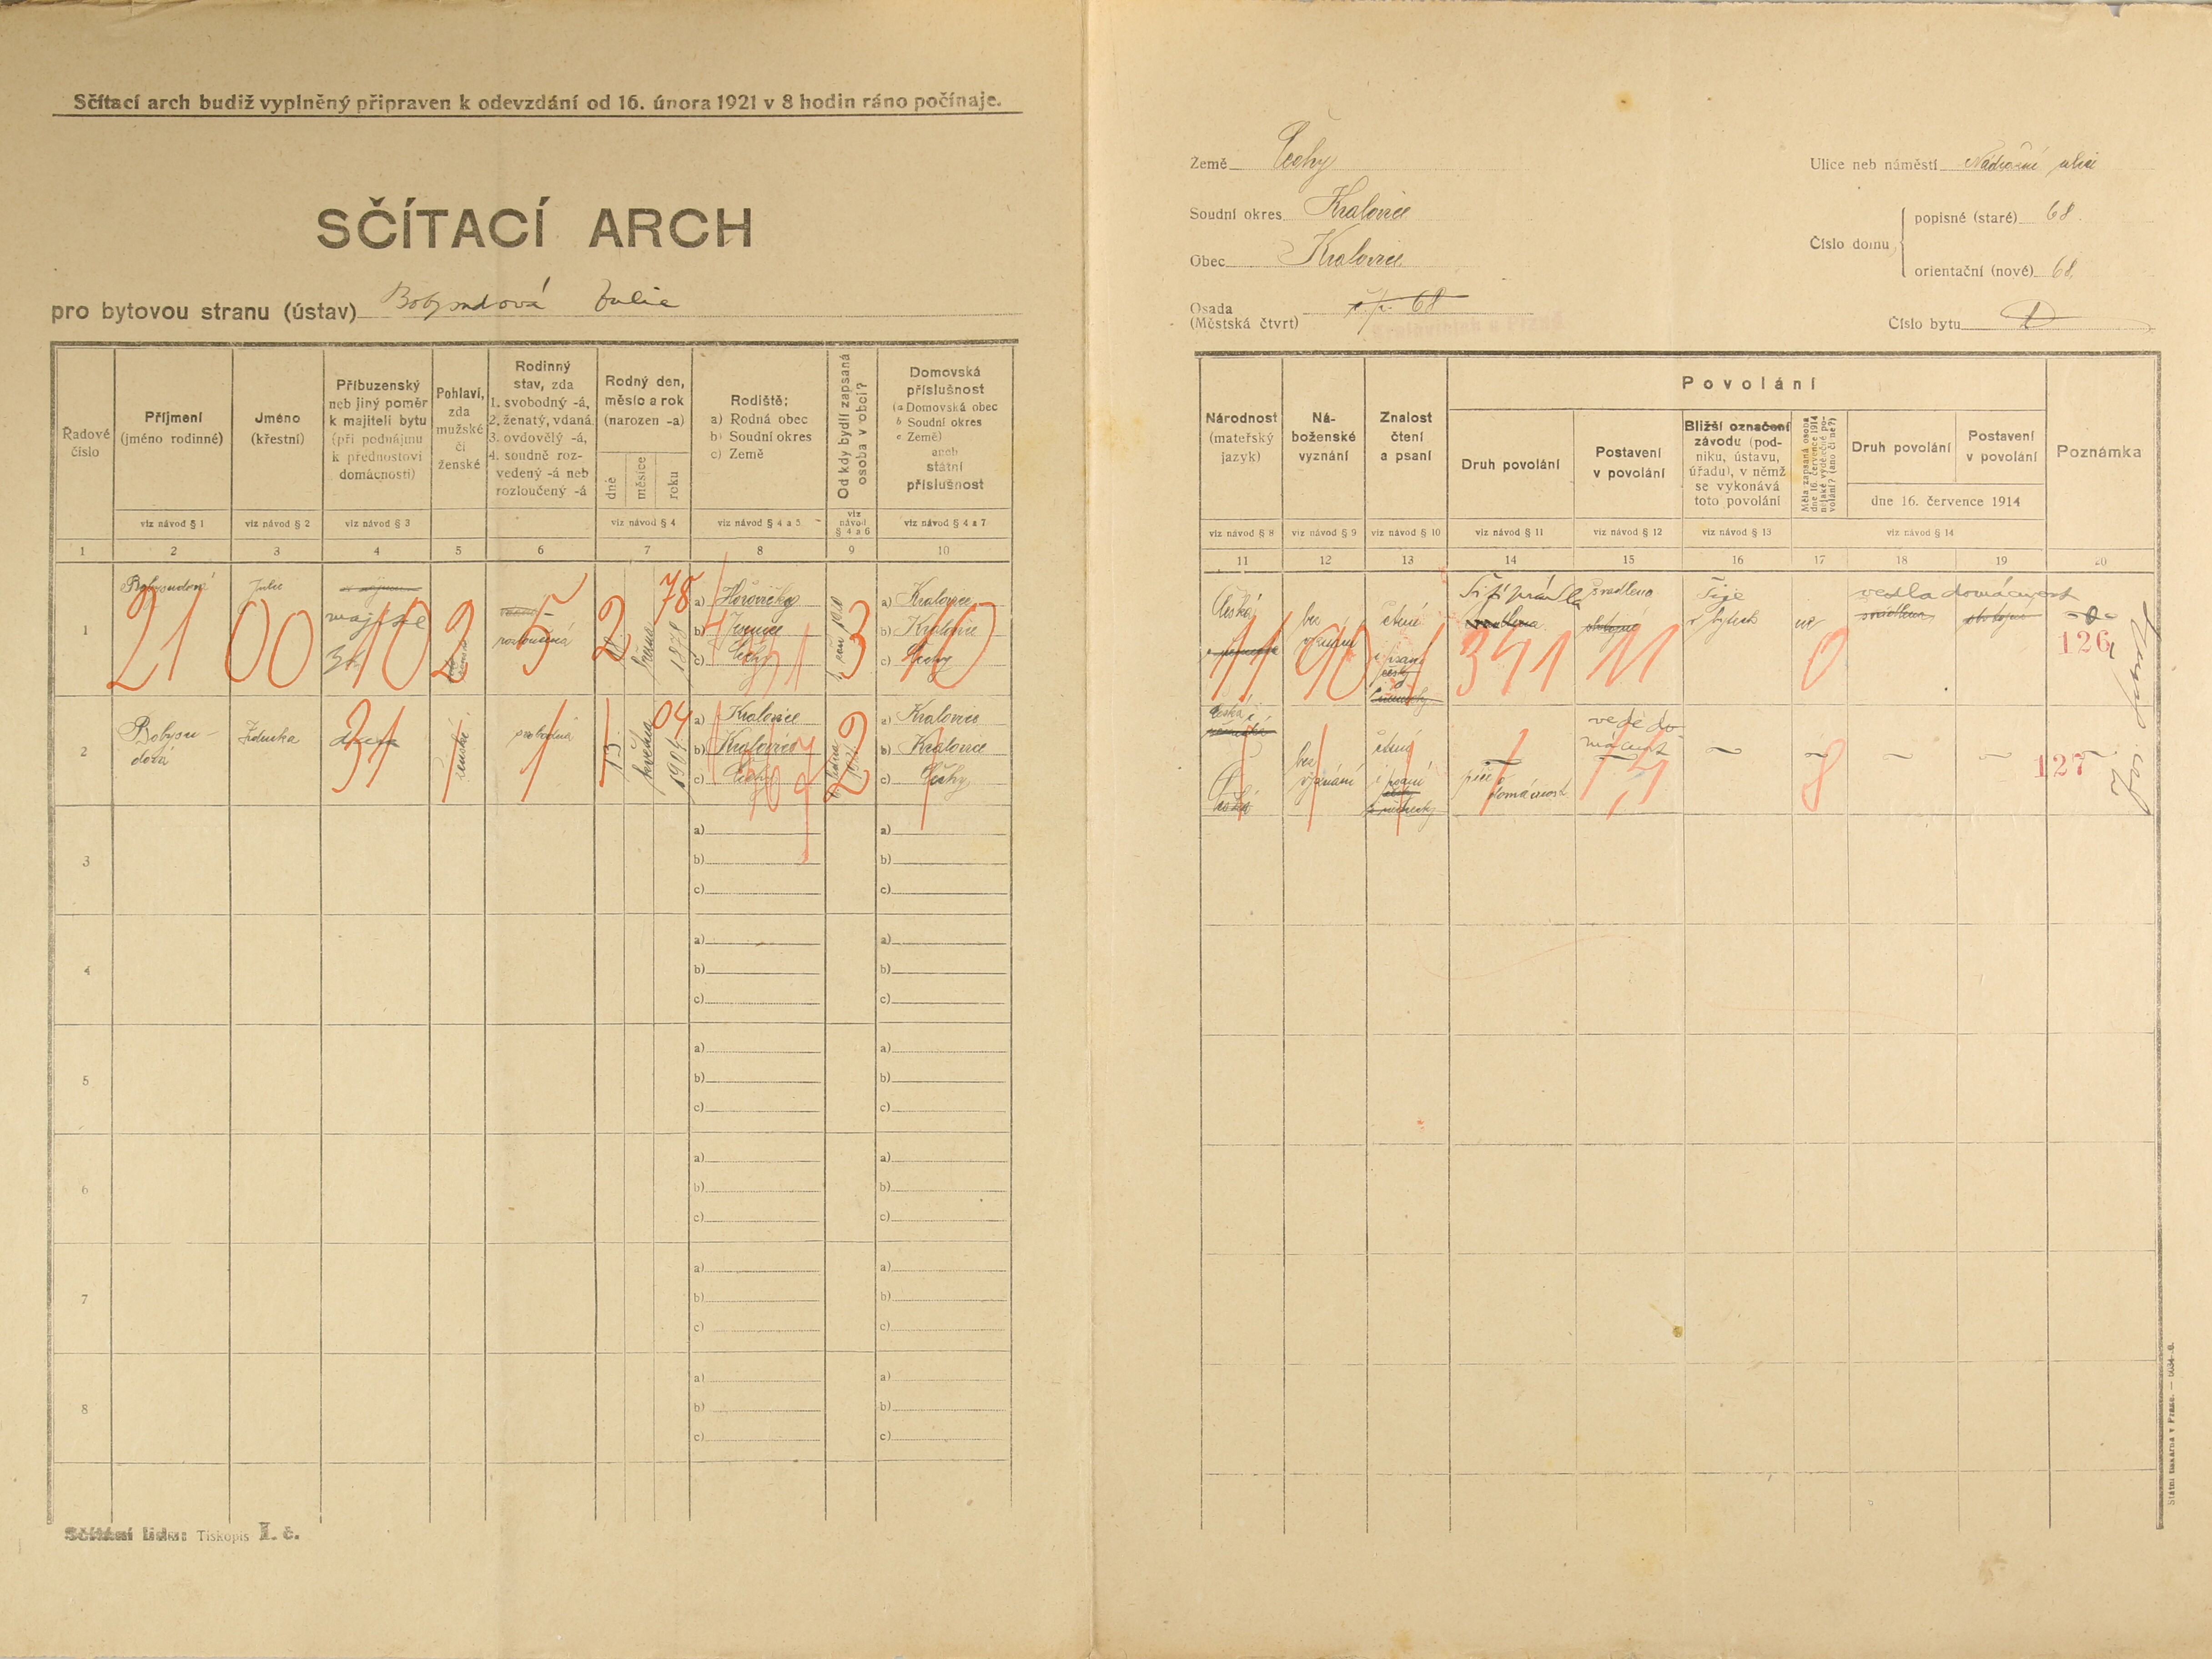 Sčítací arch budiž vyplněný připraven k odevzdání od 16. února 1921 v 8 hodin ráno počínaje.
SČÍTACÍ ARCH
pro bytovou stranu (ústav) Julie
Řadové číslo
Příjmení
(jméno rodinné)
viz návod § 1
Jméno
(křestní)
viz návod § 2
Příbuzenský
neb jiný poměr
k majiteli bytu
(při podnájmu
k přednostovi
domácnosti)
viz návod § 3
Pohlaví,
zda
mužské
či
ženské
Rodinný
stav, zda
1. svobodný -á,
2. ženatý, vdaná
3. ovdovělý -á,
4. soudně roz-
vedený -á neb
rozloučený -á
Rodný den,
měsíc a rok
(narozen -a)
dne
měsíce
roku
viz návod § 4
Rodiště:
a) Rodná obec
b) Soudní okres
c) Země
viz návod § 4 a 5
Od kdy bydlí zapsaná
osoba v obci?
viz
návod
§ 4 a 6
Domovská
příslušnost
(a Domovská obec
b Soudní okres
c Země)
aneb
státní
příslušnost
viz návod § 4 a 7
1 2 3 4 5 6 7 8 9 10
1
Julie
majitel
rozloučená
února
1878
78
a)
b)
c) Čechy
a) Kralovice
b) Kralovice
c) Čechy
21 00 10 2 5 2 3 10
2
Zdenka
dcera
ženské
svobodná
13
května
1904
04
a) Kralovice
b) Kralovice
c) Čechy
a) Kralovice
b) Kralovice
c) Čechy
31 1 1 1 2 1
3
a)
b)
c)
a)
b)
c)
4
a)
b)
c)
a)
b)
c)
5
a)
b)
c)
a)
b)
c)
6
a)
b)
c)
a)
b)
c)
7
a)
b)
c)
a)
b)
c)
8
a)
b)
c)
a)
b)
c)
Tiskopis I. č.
Země Čechy
Soudní okres Kralovice
Obec Kralovice
Osada
(Městská čtvrť) č. p. 68
Ulice neb náměstí Nádražní ulice
Číslo domu
popisné (staré) 68.
orientační (nové) 68.
Číslo bytu 1
Národnost
(mateřský
jazyk)
viz návod § 8
Ná-
boženské
vyznání
viz návod § 9
Znalost
čtení
a psaní
viz návod § 10
Povolání
Druh povolání
viz návod § 11
Postavení
v povolání
viz návod § 12
Bližší označení
závodu (pod-
niku, ústavu,
úřadu), v němž
se vykonává
toto povolání
viz návod § 13
Měla zapsaná osoba
dne 16. července 1914
nějaké výdělečné po-
volání? (ano či ne?)
Druh povolání
Postavení
v povolání
dne 16. července 1914
viz návod § 14
Poznámka
11 12 13 14 15 16 17 18 19 20
Česká
bez
vyznání
čtení
i psaní
Šití prádla
švadlena
Šije
v bytech
ne
vedla domácnost
11 90 1 341 11 0
126
česká
bez
vyznání
čtení
i psaní
péče o
domácnost
vede do-
mácnost
8
127
Státní tiskárna v Praze.